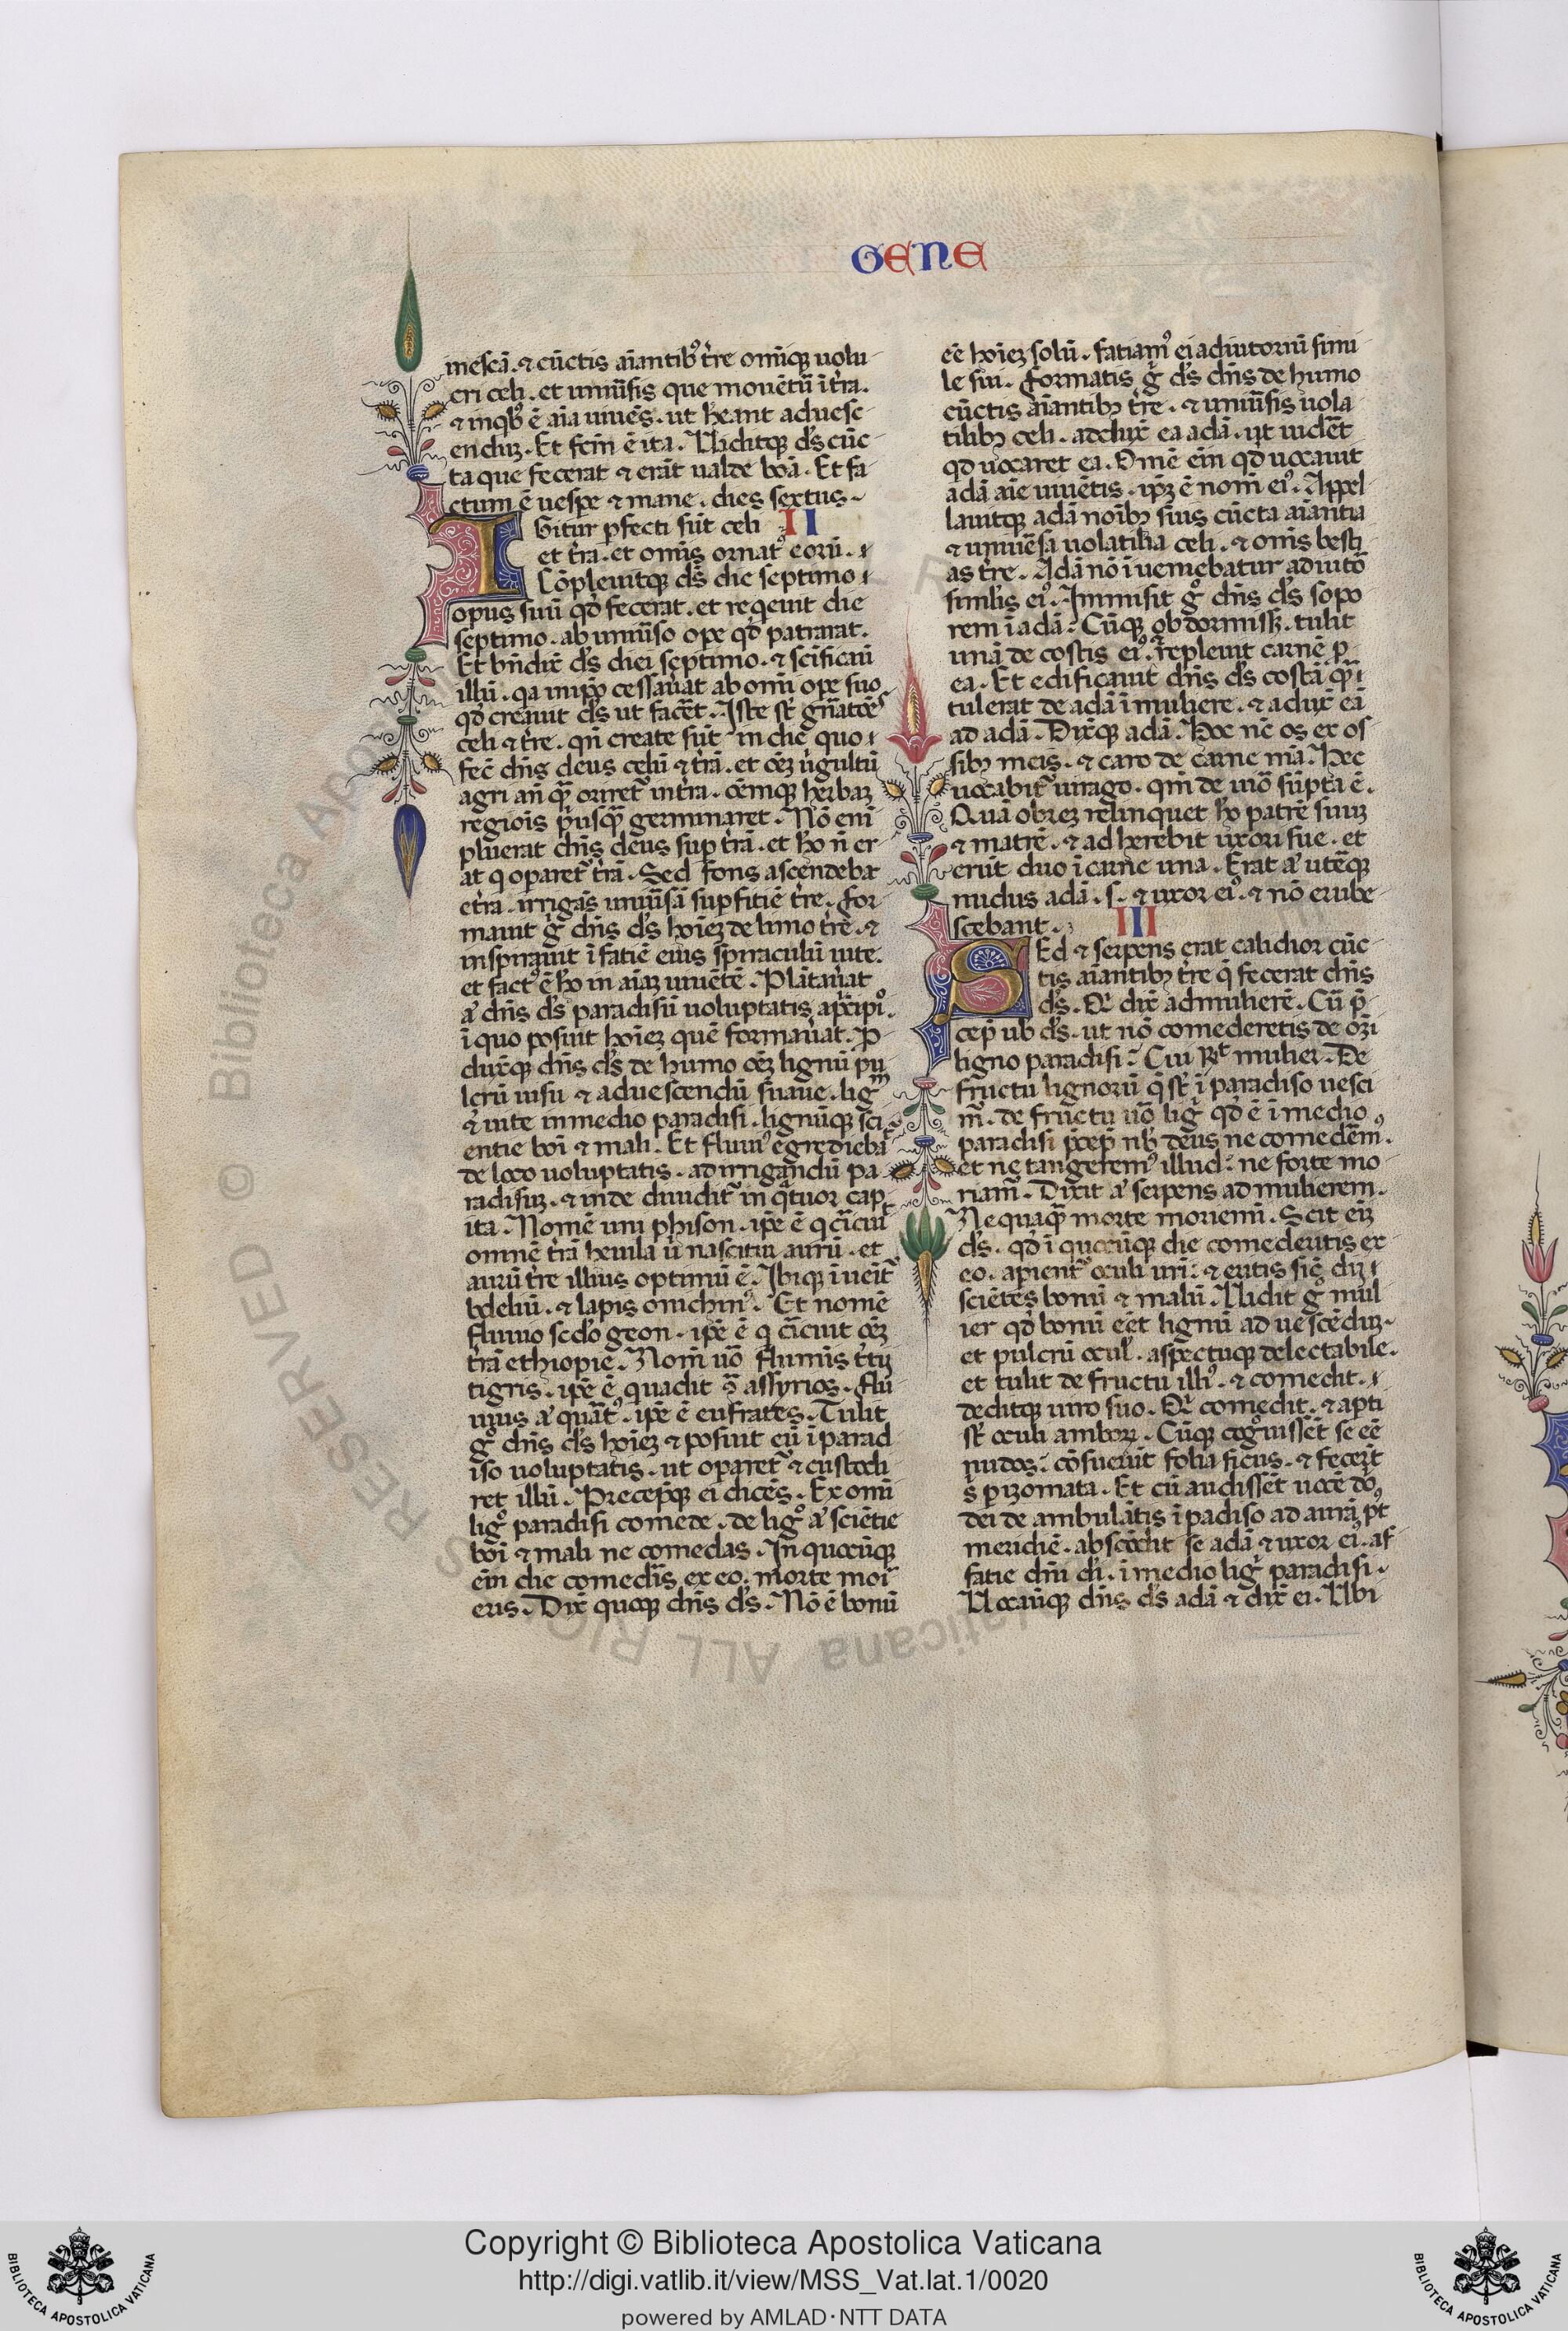 GENE
inescā. ⁊ cūctis aīantibꝰ t̄re om̄iqꝫ uolu
cri celi. et uniūsis que mouēt̄ ī t̄ra.
⁊ in qbꝰ ē aīa uiuēs. ut h̄eant ad uesc
enduꝫ. Et fcm̄ ē ita. Uiditqꝫ d̄s cūc
ta que fecerat ⁊ erāt ualde boā. Et fa
ctum ē uespe ⁊ mane. dies sextus.
II
IGitur ꝑfecti sūt celi
et t̄ra. et om̄is ornatꝰ eorū.
Cōpleuitqꝫ d̄s die septimo
opus suū qd̄ fecerat. et reqeuit die
septimo. ab uniūso ope qd̄ patrarat.
Et bn̄dix̄ d̄s diei septimo. ⁊ scīficauī
illū. qa in ip̄o cessau̅at ab om̄i ope suo
qd̄ creauit d̄s ut facēt. Iste st̄ gn̄atōēs
celi ⁊ t̄re. qn̄ create sūt in die quo
fec̄ dn̄s deus celū ⁊ t̄rā. et oēꝫ ūgultū
agri an̄ qꝫ oriret̄ in t̄ra. oēmqꝫ herbaꝫ
regiois p̄usqꝫ germinaret. Nō eni
pluerat dn̄s deus sup t̄rā. et ho n̄ er
at q oparet̄ t̄rā. Sed fons ascendeba
e t̄ra. irrigās uniūsā supfitiē t̄re. For
mauit ḡ dn̄s d̄s hoīeꝫ de limo t̄re. ⁊
inspirauit ī fatiē eius spiraculū uite.
et factꝰ ē ho in aīaꝫ uiuētē. Plātau̅at
aͥ dn̄s d̄s paradisū uoluptatis a pͥcipiͦ.
ī quo posuit hoīeꝫ quē formau̅at. P
duxitqꝫ dn̄s d̄s de humo oēꝫ lignū pu
lcrū uisu ⁊ ad uescendū suaue. ligm
⁊ uite in medio paradisi. lignūqꝫ sci
entie boī ⁊ mali. Et fluuiꝰ egredieba
de loco uoluptatis. ad irrigandū pa
radisuꝫ. ⁊ inde diuidit̄ in qͣtuor cap
ita. Nomē uni phison. ip̄e ē q cīcuit
omnē t̄rā heuila ū nascitur aurū. et
aurū t̄re illius optimū ē. Ibiqꝫ īueit̄
bdeliū. ⁊ lapis onichinꝰ. Et nomē
fluuio scd̄o geon. ip̄e ē q cīcuit oēꝫ
t̄rā ethiopie. Nom̄ uō flumīs t̄tij
tigris. ip̄e ē quadit ꝯ̄ assyrios. Flu
uius aͥ quātꝰ. ip̄e ē eufrates. Tulit
ḡ dn̄s d̄s hoīeꝫ ⁊ posuit eū ī parad
iso uoluptatis. ut oparet̄ ⁊ custodi
ret illū. Precepitqꝫ ei dicēs. Ex omī
ligͦ paradisi comede. de ligͦ aͥ sciētie
boī ⁊ mali ne comedas. In quocūqꝫ
eīm die comedīs ex eo. morte mori
eris. Dix̄ quoqꝫ dn̄s d̄s. Nō ē bonū
eē hoīeꝫ solū. Fatiamꝰ ei adiutoriū simi
le sui. Formatis ḡ d̄s dn̄s de humo
cūctis aīantibꝫ t̄re. ⁊ uniūsis uola
tilibꝫ celi. adduxͭ ea adā. ut uidēt
qd̄ uocaret ea. Omē eīm qd̄ uocauit
adā aīe uiuētis. ipꝫ ē nom̄ eiꝰ. Appel
lauitqꝫ adā noībꝫ suis cūcta aīantia
⁊ uniuēsa uolatilia celi. ⁊ omīs besti
as t̄re. Adā nō īueniebatur adiutoͬ
simīlis eiꝰ. Immisit gͦ dn̄s d̄s sopo
rem ī adā. Cūqꝫ obdormissꝫ. tulit
unā de costis eiꝰ. ⁊ repleuit carnē ꝑ
ea. Et edificauit dn̄s d̄s costā qꝫ
tulerat de adā ī muliere. ⁊ aduxͭ eā
ad adā. Dixitqꝫ adā. Hoc nc̄ os ex os
sibꝫ meis. ⁊ caro de carne m̄a. Hec
uocabit̄ uirago. qm̄ de uiō sūpta ē.
Quā obreꝫ relinquet ho patrē suuꝫ
⁊ matrē. ⁊ ad herebit uxori sue. et
erūt duo ī carne una. Erat aͥ utēqꝫ
nudus adā. s. ⁊ uxor eiꝰ. ⁊ nō erube
scebant.
III
SEd ⁊ serpens erat calidior cūc
tis aīantibꝫ t̄re q̄ fecerat dn̄s
d̄s. Qͥ dix̄ ad mulierē. Cū p̄
cep̄ ub̄ d̄s. ut nō comederetis de oēꝫi
ligno paradisi. Cui R̄t mulier. De
fructu lignorū q̄ st̄ ī paradiso uesci
m̄. de fructu uō ligͥ qd̄ ē ī medio
paradisi p̄cep̄ nb̄ deus ne comedēmꝰ.
et ne tangeremꝰ illud. ne forte mo
riam̄. Dixit aͥ serpens ad mulierem.
Ne quaqꝫ morte moriemī. Scit eīꝫ
d̄s. qd̄ ī quocūqꝫ die comederitis ex
eo. apient̄ oculi uri. ⁊ eritis sic̄ dij
sciētes bonū ⁊ malū. Uidit gͦ mul
ier qd̄ bonū eēt lignū ad uescēduꝫ.
et pulcrū ocul̄. aspectuqꝫ delectabile.
et tulit de fructu illiꝰ. ⁊ comedit.
deditqꝫ uiro suo. Qͥ comedit. ⁊ apti
st̄ oculi amboꝝ. Cūqꝫ cogͦuissēt se eē
nudos. cōsuerūt folia ficus. ⁊ fecer̄t
s̄ pizomata. Et cū audissēt uocē dō
dei de ambulātis ī padiso ad aurā pͭ
meridiē. abscōdit se adā ⁊ uxor eiꝰ. af
fatie dn̄i di. ī medio ligͥ paradisi.
Uocauitqꝫ dn̄s d̄s adā ⁊ dix̄ ei. Ubi
© Biblioteca Apostolica Vaticana ALL RIGHTS RESERVED
Copyright © Biblioteca Apostolica Vaticana
http://digi.vatlib.it/view/MSS_Vat.lat.1/0020
powered by AMLAD・NTT DATA
BIBLIOTECA APOSTOLICA VATICANA
BIBLIOTECA APOSTOLICA VATICANA